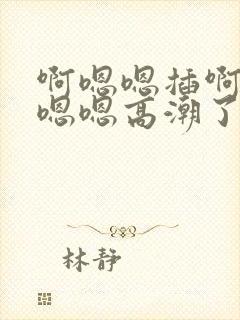 啊嗯嗯插啊
嗯嗯高潮了
林静